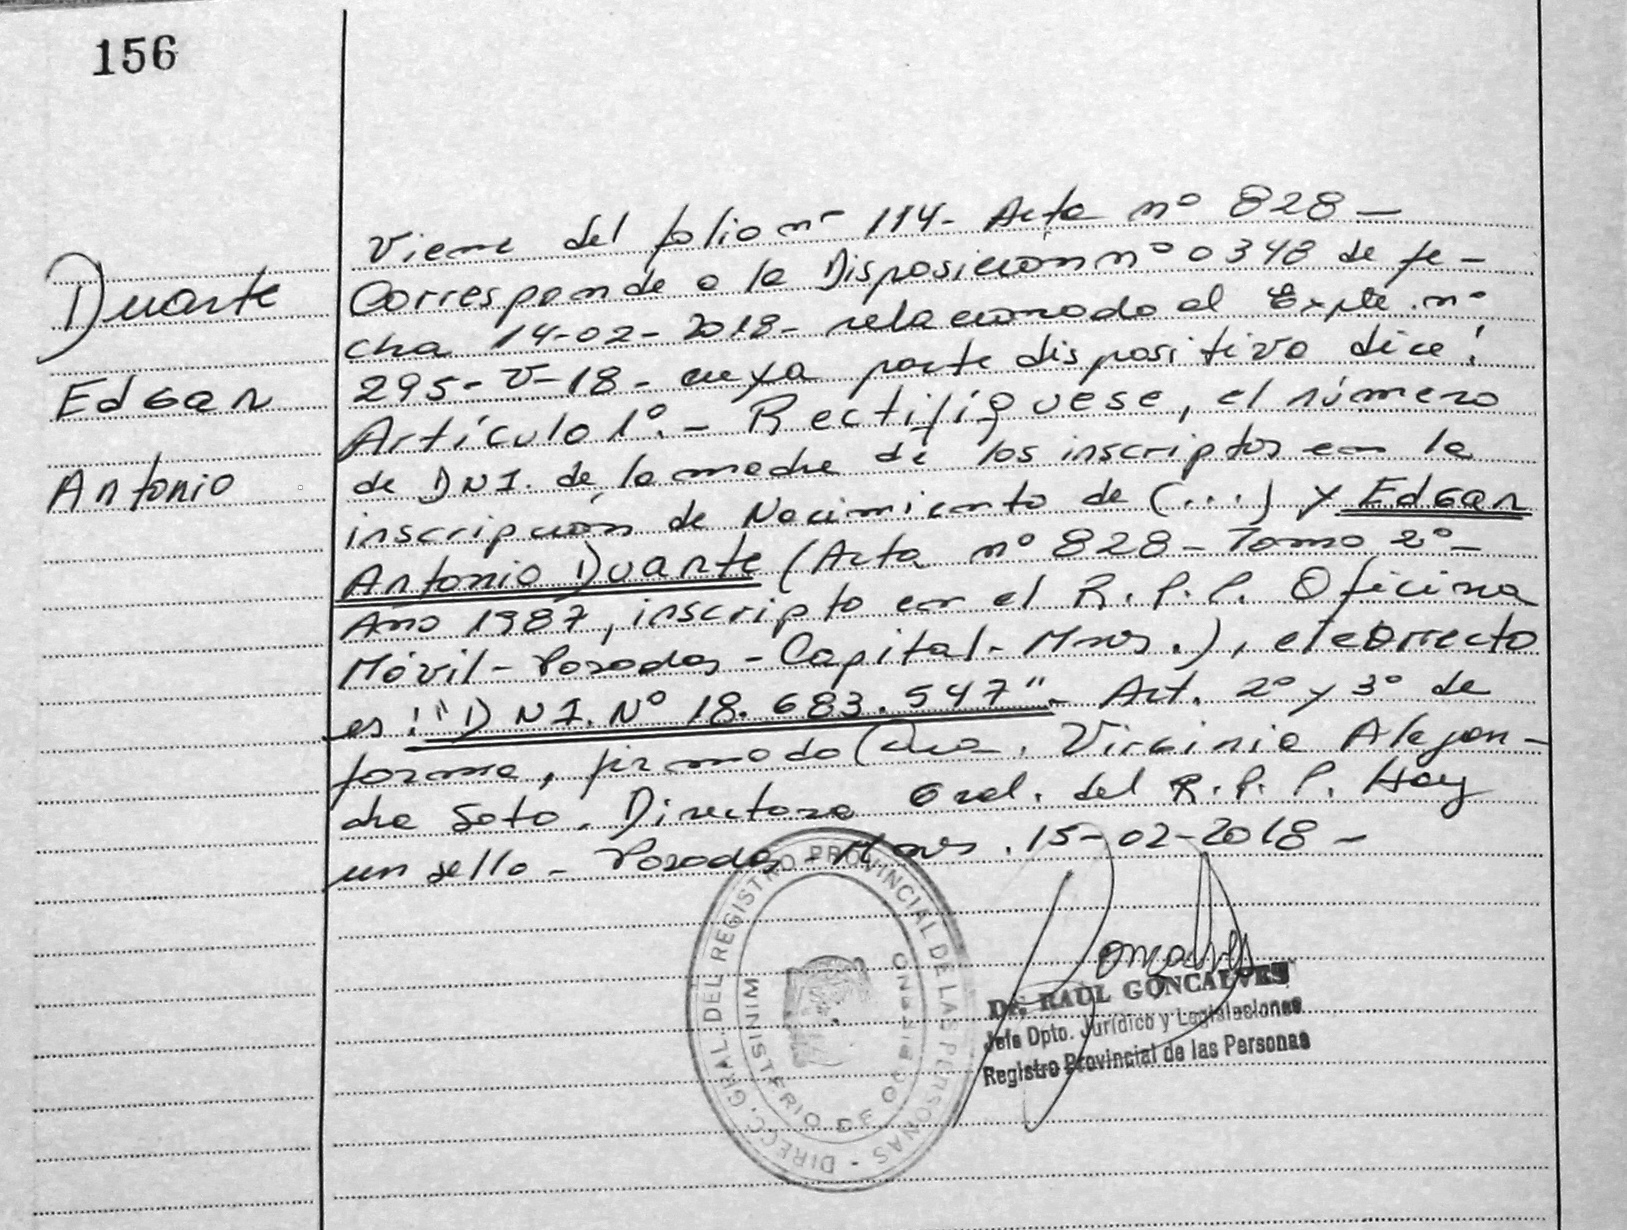 156
Duarte
Edgar
Antonio
Viene del folio nº 114- Acta nº 828-
Corresponde a la Disposición nº 0348 de fe-
cha 14-02-2018- relacionado al Expte. nº
295-V-18- cuya parte dispositiva dice:
Artículo 1º.- Rectifíquese, el número
de DNI. de la madre de los inscriptos en la
inscripción de Nacimiento de (...) y Edgar
Antonio Duarte (Acta nº 828- Tomo 2º-
Año 1987, inscripto en el R.P.P. Oficina
Móvil- Posadas- Capital- Mnes.), el correcto
es: "DNI. Nº 18.683.547"- Art. 2º y 3º de
forma, firmado Virginia Alejan-
dra Soto. Directora Gral. del R.P.P. Hay
un sello- Posadas- Mnes. 15-02-2018-
DIRECC. GRAL. DEL REGISTRO PROVINCIAL DE LAS PERSONAS -
MINISTERIO DE GOBIERNO
Dr. RAUL GONCALVES
Jefe Dpto. Jurídico y Legislaciones
Registro Provincial de las Personas